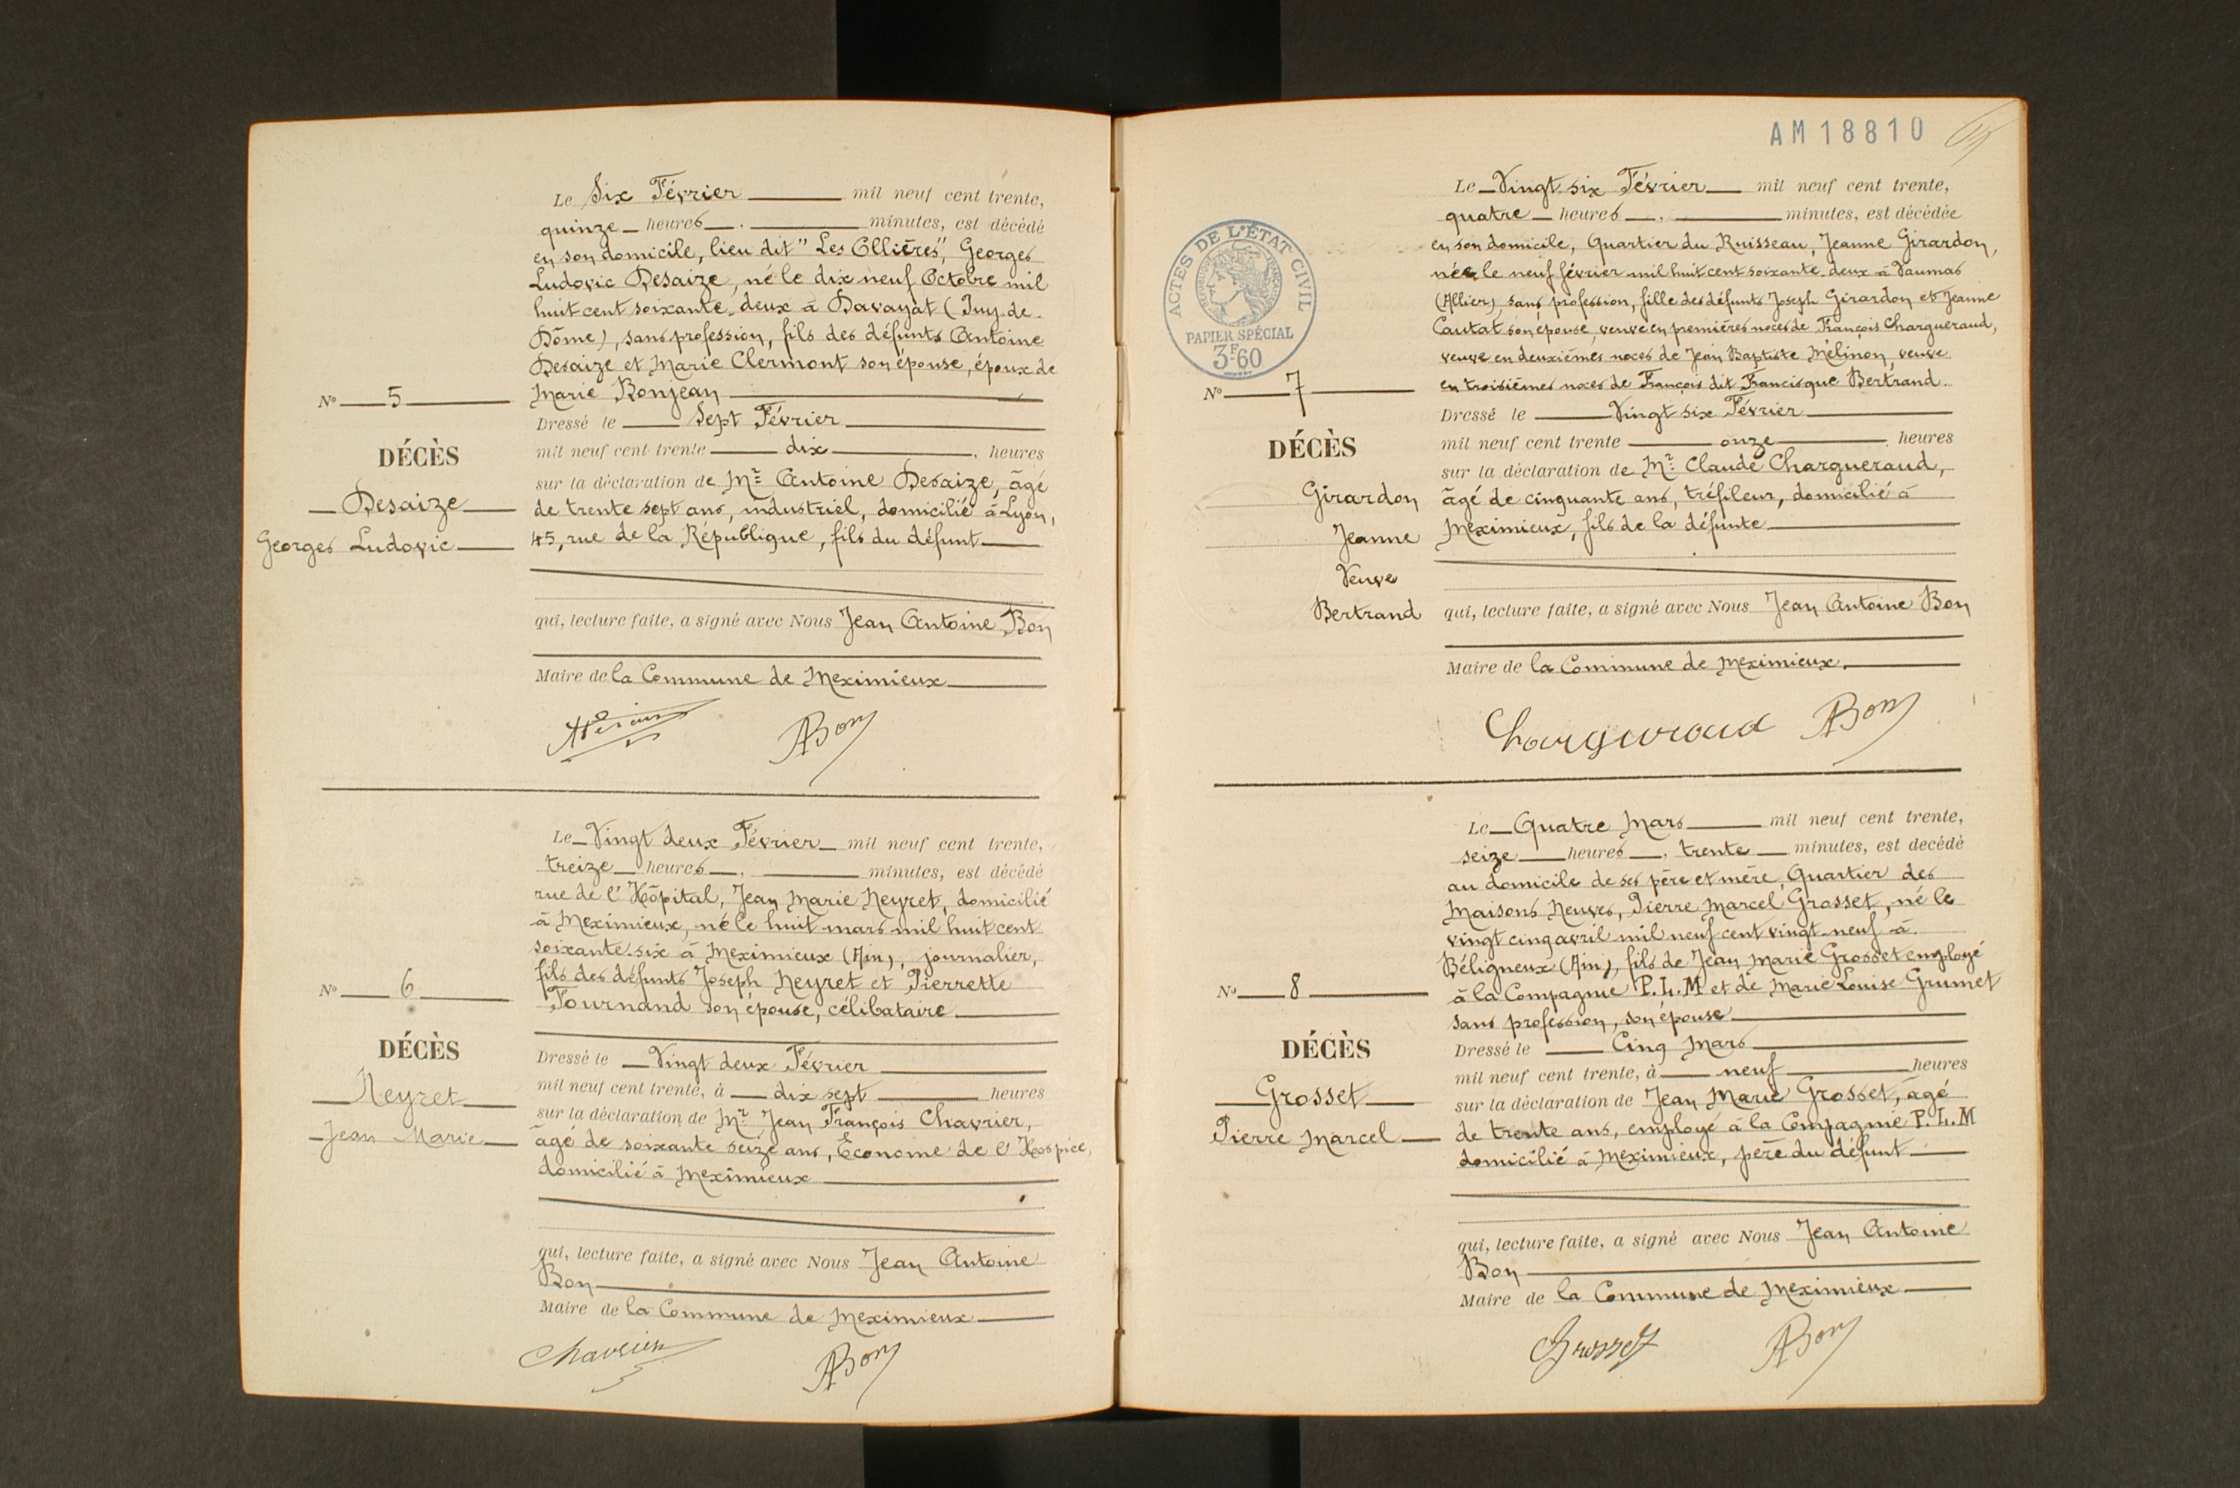 Le Six Février mil neuf cent trente,
quinze heures. minutes, est décédé
en son domicile, lieu dit "Les Ollières", Georges
Ludovic Desaize, né le dix neuf Octobre mil
huit cent soixante deux à Davayat (Puy-de-
Dôme), sans profession, fils des défunts Antoine
Desaize et Marie Clermont son épouse, époux de
Marie Bonjean
Nº 5
Dressé le Sept Février
mil neuf cent trente dix, heures
DÉCÈS
sur la déclaration de Mr Antoine Desaize, âgé
Desaize
de trente sept ans, industriel, domicilié à Lyon,
Georges Ludovic
45, rue de la République, fils du défunt
qui, lecture faite, a signé avec Nous Jean Antoine Bon
Maire de la Commune de Meximieux
ABon
Le Vingt deux Février mil neuf cent trente,
treize heures. minutes, est décédé
rue de l'Hôpital, Jean Marie Neyret, domicilié
à Meximieux, né le huit mars mil huit cent
soixante-six à Meximieux (Ain), journalier,
fils des défunts Joseph Neyret et Pierrette
Nº 6
Tournand son épouse, célibataire
DÉCÈS
Dressé le Vingt deux Février
Neyret
mil neuf cent trente, à dix sept heures
Jean Marie
sur la déclaration de Mr Jean François Chavrier,
âgé de soixante seize ans, Économe de l'Hospice,
domicilié à Meximieux
qui, lecture faite, a signé avec Nous Jean Antoine
Bon
Maire de la Commune de Meximieux
Chavrier ABon
AM 18810
Le Vingt six Février mil neuf cent trente,
quatre heures. minutes, est décédée
en son domicile, Quartier du Ruisseau, Jeanne Girardon,
née le neuf février mil huit cent soixante-deux à Vaumas
(Allier), sans profession, fille des défunts Joseph Girardon et Jeanne
Cautat son épouse, veuve en premières noces de François Chargueraud,
veuve en deuxièmes noces de Jean Baptiste Mélinon, veuve
en troisièmes noces de François dit Francisque Bertrand.
ACTES DE L'ÉTAT CIVIL
PAPIER SPÉCIAL
3F60
Nº 7
Dressé le Vingt six Février
mil neuf cent trente onze heures
DÉCÈS
sur la déclaration de Mr Claude Chargueraud,
Girardon
âgé de cinquante ans, tréfileur, domicilié à
Jeanne
Meximieux, fils de la défunte
Veuve
Bertrand
qui, lecture faite, a signé avec Nous Jean Antoine Bon
Maire de la Commune de Meximieux
Chargueraud ABon
Le Quatre Mars mil neuf cent trente,
seize heures, trente minutes, est decédé
au domicile de ses père et mère, Quartier des
Maisons Neuves, Pierre Marcel Grosset, né le
vingt cinq avril mil neuf cent vingt-neuf à
Béligneux (Ain), fils de Jean Marie Grosset employé
à la Compagnie P.L.M et de Marie Louise Grumet
sans profession, son épouse
Nº 8
DÉCÈS
Dressé le Cinq Mars
mil neuf cent trente, à neuf heures
Grosset
sur la déclaration de Jean Marie Grosset, âgé
Pierre Marcel
de trente ans, employé à la Compagnie P.L.M
domicilié à Meximieux, père du défunt
qui, lecture faite, a signé avec Nous Jean Antoine
Bon
Maire de la Commune de Meximieux
Grosset ABon